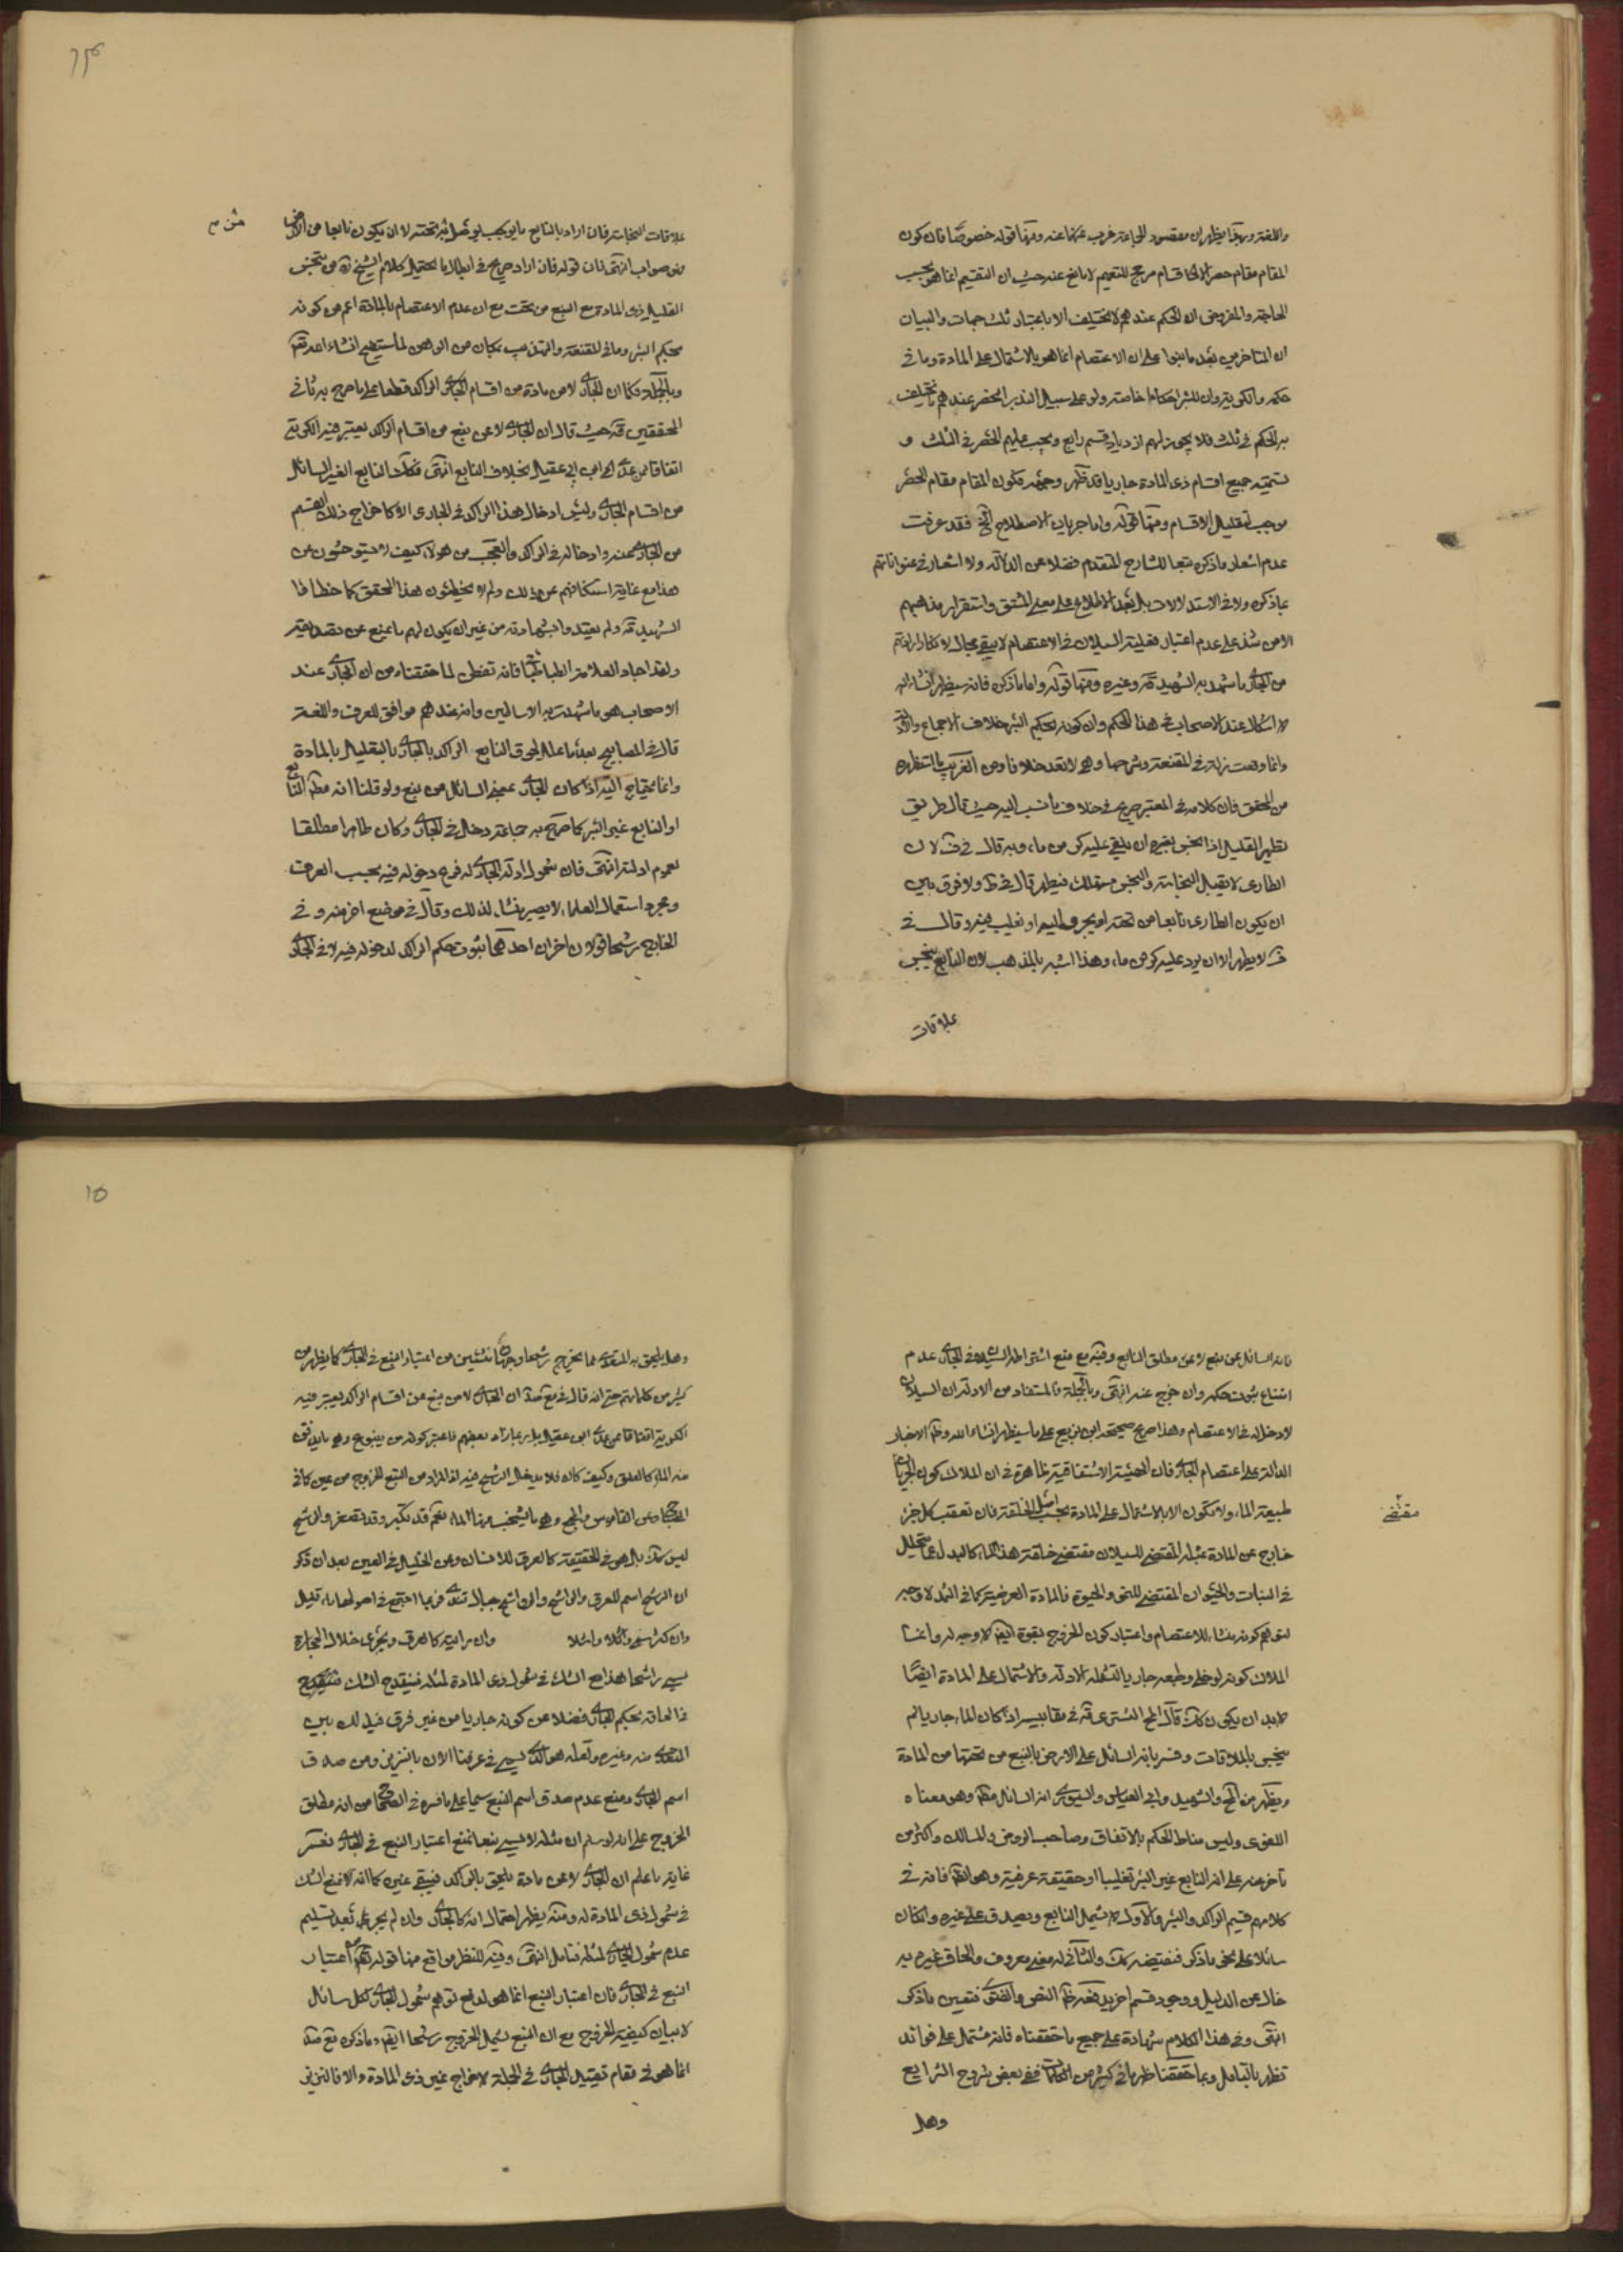 واللغة وبهذا يظهر ان مقصود الجماعة غريب عنها عنه ومنها قوله خصوصًا فان كون
المقام مقام حصر الاقسام مرجح للتعميم لا مانع عنه حيث ان التقسيم انما هو بحسب
الحاجة والمفروض ان الحكم عندهم لا يختلف الا باعتبار ثلث جهات والبيان
ان المتاخرين بعد ما بنوا على ان الاعتصام انما هو بالاشتمال على المادة وما في
حكمه والكرية وان للبئر احكاما خاصة ولو على سبيل الندب انحصر عندهم ما يختلف
به الحكم في ثلث فلا يجوز لهم ازدياد قسم رابع ويجب عليهم الحصر في الثلث و
تسمية جميع اقسام ذي المادة جاريا قد ظهر وجهه فكون المقام مقام الحصر
موجب لتقليل الاقسام ومنها قوله واما جريان الاصطلاح الخ فقد عرفت
عدم اشعار ما ذكره تبعا للشارح المتقدم فضلا عن الدلالة ولا اشعار في عنواناتهم
بما ذكره ولا في الاستدلالات بل بعد الاطلاع على معنى المشتق واستقرار مذاهبهم
الا من شذ على عدم اعتبار فعلية السيلان في الاعتصام لا يبقى مجال لانكار ارادتهم
من الجاري ما شهد به الشهيد قه وغيره ومنها قوله واما ما ذكره فانه سيظهر انشاء الله
لا اشكال عند الاصحاب في هذا الحكم وان كونه بحكم البئر خلاف الاجماع
وانما وقعت زلة في المقنعة وشرحها وهي لا تعد خلافا ومن الغريب استظهاره
من المحقق فان كلامه في المعتبر صريح في خلاف ما نسب اليه حيث قال طريق
تطهير القليل اذا نجس بتغيره ان يلقى عليه كر من ماء وبه قال في ف لان
الطاري لا يقبل النجاسة والنجس مستهلك فيطهر قال في ط ولا فرق بين
ان يكون الطاري نابعا من تحته او يجري اليه او يغلب فيه وقال في
ف لا يطهر الا ان يرد عليه كر من ماء وهذا اشبه بالمذهب لان النابع ينجس
علاقات
علاقات النجاسة فان اراد بالنابع ما يوجب لو وصل اليه تحته لا ان يكون نابعا من الارض
فهو صواب انتهى فان قوله فان اراد صريح في ابطال ما يحتمل كلام الشيخ ره من تنجس
القليل ذي المادة مع النبع من تحت مع ان عدم الاعتصام بالمادة اعم من كونه
بحكم البئر وما في المقنعة والتهذيب بمكان من الوهن لما ستضح انشاء الله تع
وبالجملة فكما ان الجاري لا من مادة من اقسام الراكد قطعا على ما صرح به ثاني
المحققين قه حيث قال ان الجاري لا عن نبع من اقسام الراكد يعتبر فيه الكرية
اتفاقا ممن عدا ابن ابي عقيل بخلاف النابع انتهى فكذلك النابع الغير السائل
من اقسام الجاري وليس ادخال هذا الراكد في الجاري الا كاخراج ذلك القسم
من الجاري عنه وادخاله في الراكد والتعجب من هؤلاء كيف لا يستوحشون من
هذا مع غاية استنكافهم عن ذلك ولم لا يخطئون هذا المحقق كما خطاوا
الشهيد قه ولم يعتدوا بشهادته من غير ان يكون لهم ما يمنع عن تصديقه
ولقد اجاد العلامة الطباطبائي فانه تفطن لما حققناه من ان الجاري عند
الاصحاب هو ما شهدت به الاساطين وانه عندهم موافق للعرف واللغة
قال في المصابيح بعد ما علل لحوق النابع الراكد بالجاري بالتعليل بالمادة
وانما يحتاج اليه اذا كان الجاري عندهم السائل من نبع ولو قلنا انه مطلق النابع
او النابع غير البئر كما صرح به جماعة دخل في الجاري وكان طاهرا مطلقا
لعموم ادلته انتهى فان شمول ادلة الجاري له فرع دخوله فيه بحسب العرف
ومجرد استعمال العلماء لا يصير منشاء لذلك وقال في موضع اخر منه و في
الخارج رشحا قولان اخران احدهما ثبوت حكم الراكد لدخوله فيه لا في الجاري
مثن م
فانه السائل عن نبع لا عن مطلق النابع وفيه مع منع اشتراط السيلان في الجاري عدم
امتناع ثبوت حكمه وان خرج عنه انتهى وبالجملة فالمستفاد من الادلة ان السيلان
لا دخل له في الاعتصام وهذا صريح صحيحة ابن بزيع على ما سيظهر انشاء الله وظاهر الاخبار
الدالة على اعتصام الجاري فان الهيئة الاشتقاقية ظاهرة في ان الملاك كون الجريان
طبيعة الماء ولا تكون الا بالاشتمال على المادة بحسب اصل الخلقة فان تعقب كل جزء
خارج عن المادة بمثله المقتضي للسيلان مقتضى خلقة هذا الماء كالبدل عما يتحلل
في النبات والحيوان المقتضي للنمو والحيوة فالمادة العرضية كما في الثمد لا وجه
لتوهم كونه منشاء للاعتصام واعتبار كون الخروج بقوة ايضا لا وجه له وانما
الملاك كونه لو خلي وطبعه جاريا لتشمله الادلة والاشتمال على المادة ايضًا
لا بد ان يكون كذلك قال المح التستري قه في مقابيسه اذا كان الماء جاريا لم
ينجس بالملاقات وفسر بانه السائل على الارض بالنبع من تحتها من المادة
ويظهر من المح والشهيد وابي العباس والسيوري انه السائل مطلقا وهو معناه
اللغوي وليس مناط الحكم بالاتفاق وصاحب الروض والمسالك واكثر من
تاخر عنه على انه النابع غير البئر تغليبا او حقيقة عرفية وهو الظاهر فانه في
كلامهم قسيم الراكد والبئر والاول لا يشمل النابع ويصدق على غيره وان كان
سائلا على نحو ما ذكر فنقيضه كذلك والثاني له معنى معروف والحاق غيره به
خال عن الدليل ووجود قسم اخر يدفعه ظاهر النص والفتوى فتعين ما ذكر
انتهى وفي هذا الكلام شهادة على جميع ما حققناه فانه مشتمل على فوائد
تظهر بالتامل وبما حققنا ظهر ما في كثير من الكلمات ففي بعض شروح الشرايع
وهل
مقتضى
وهل يلحق به المتعدي مما يخرج رشحا وجهان ناشئين من اعتبار النبع في الجاري كما يظهر من
كثير من كلماتهم حتى انه قال في مع صد ان الجاري لا من نبع من اقسام الراكد يعتبر فيه
الكرية اتفاقا ممن عدا ابن ابي عقيل بل ربما زاد بعضهم فاعتبر كونه من ينبوع وهو ما يتدفق
منه الماء كالفلق وكيف كان فلا يدخل الرشح فيه اذ المراد من النبع الخروج من عين كما في
الصحاح وعن القاموس والمجمع وهو ما ينبجس منها الماء نعم قد تكبر وقد تصغر والرشح
ليس كذلك بل هو في الحقيقة كالعرق للانسان وعن الخليل في العين بعد ان ذكر
ان الرشح اسم للعرق والراشح والرواشح جبال تندى فربما اجتمع في اصولها ماء قليل
وان كثر سمي وشلا وان رايته كالعرق ويجري خلال الحجارة
سمي راشحا هذا مع الشك في شمول ذي المادة لمثله فينقدح الشك
في الحاقه بحكم الجاري فضلا عن كونه جاريا من غير فرق في ذلك بين
المتعدي منه وغيره ولعله هو الذي يسمى في عرفنا الان بالنزيز ومن صدق
اسم الجاري ومنع عدم صدق اسم النبع سيما على ما فسره في الصحاح من انه مطلق
الخروج على انه لو سلم ان مثله لا يسمى نبعا نمنع اعتبار النبع في الجاري نعم
غاية ما علم ان الجاري لا عن مادة ملحق بالراكد فيبقى غيره كما انه لا نمنع الشك
في شمول ذي المادة له ومنه يظهر احتمال انه كالجاري وان لم يجر بل بعد تسليم
عدم شمول الجاري لمثله فتامل انتهى وفيه للنظر مواقع منها قوله نعم اعتبار
النبع في الجاري فان اعتبار النبع انما هو لدفع توهم شمول الجاري لكل سائل
لا لبيان كيفية الخروج مع ان النبع يشمل الخروج رشحا ايضا وما ذكره مع صد
انما هو في مقام تقييد الجاري في الجملة لاخراج غير ذي المادة والا فالنزيز